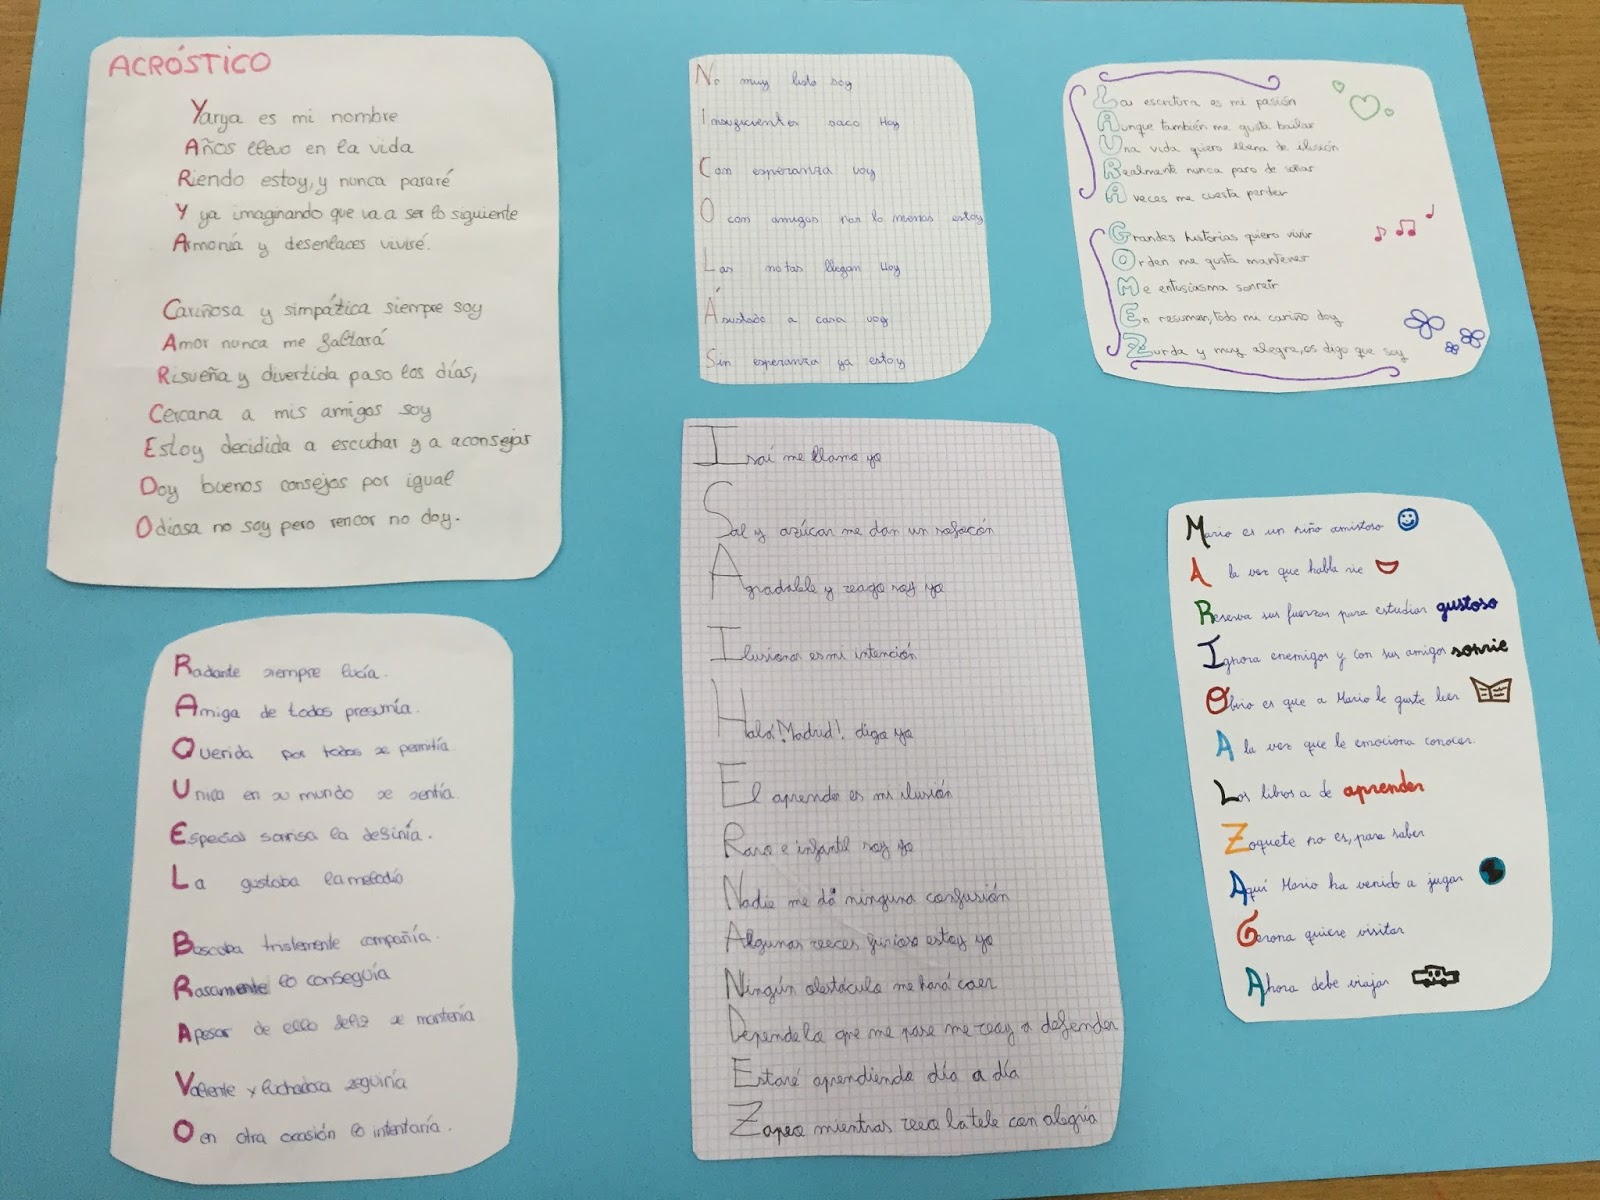 ACRÓSTICO
Yarya es mi nombre
Años llevo en la vida
Riendo estoy, y nunca pararé
Y ya imaginando que va a ser lo siguiente
Armonía y desenlaces viviré.
Cariñosa y simpática siempre soy
Amor nunca me faltará
Risueña y divertida paso los días,
Cercana a mis amigos soy
Estoy decidida a escuchar y a aconsejar
Doy buenos consejos por igual
Odiosa no soy pero rencor no doy.
No muy listo soy
Insuficientes saco Hoy
Con esperanza voy
O con amigos por lo menos estoy
Las notas llegan Hoy
Asustado a casa voy
Sin esperanza ya estoy
La escritura es mi pasión
Aunque también me gusta bailar
Una vida quiero llena de ilusión
Realmente nunca paro de soñar
A veces me cuesta perder
Grandes historias quiero vivir
Orden me gusta mantener
Me entusiasma sonreír
En resumen, todo mi cariño doy
Zurda y muy alegre, os digo que soy
Isaí me llamo yo
Sal y azúcar me dan un sofocón
Agradable y vago soy yo
Ilusionar es mi intención
Halá! Madrid! digo yo
El aprender es mi ilusión
Raro e infantil soy yo
Nadie me dá ninguna confusión
Algunas veces furioso estoy yo
Ningún obstáculo me hará caer
Depende lo que me pase me voy a defender
Estaré aprendiendo día a día
Zapeo mientras veo la tele con alegría
Mario es un niño amistoso
A la vez que habla rie
Reserva sus fuerzas para estudiar gustoso
Ignora enemigos y con sus amigos sonrie
Obvio es que a Mario le guste leer
A la vez que le emociona conocer.
Los libros a de aprender
Zoquete no es, para saber
Aquí Mario ha venido a jugar
Gerona quiere visitar
Ahora debe viajar
Radante siempre lucía.
Amiga de todos presumía.
Querida por todos se permitía
Unica en su mundo se sentía.
Especial sonrisa la definía.
La gustaba la melodio
Boscaba tristemente compañía.
Rasamente lo conseguía
Apesar de ello feliz se mantenía
Valiente y luchadora seguiría
O en otra ocasión lo intentaría.